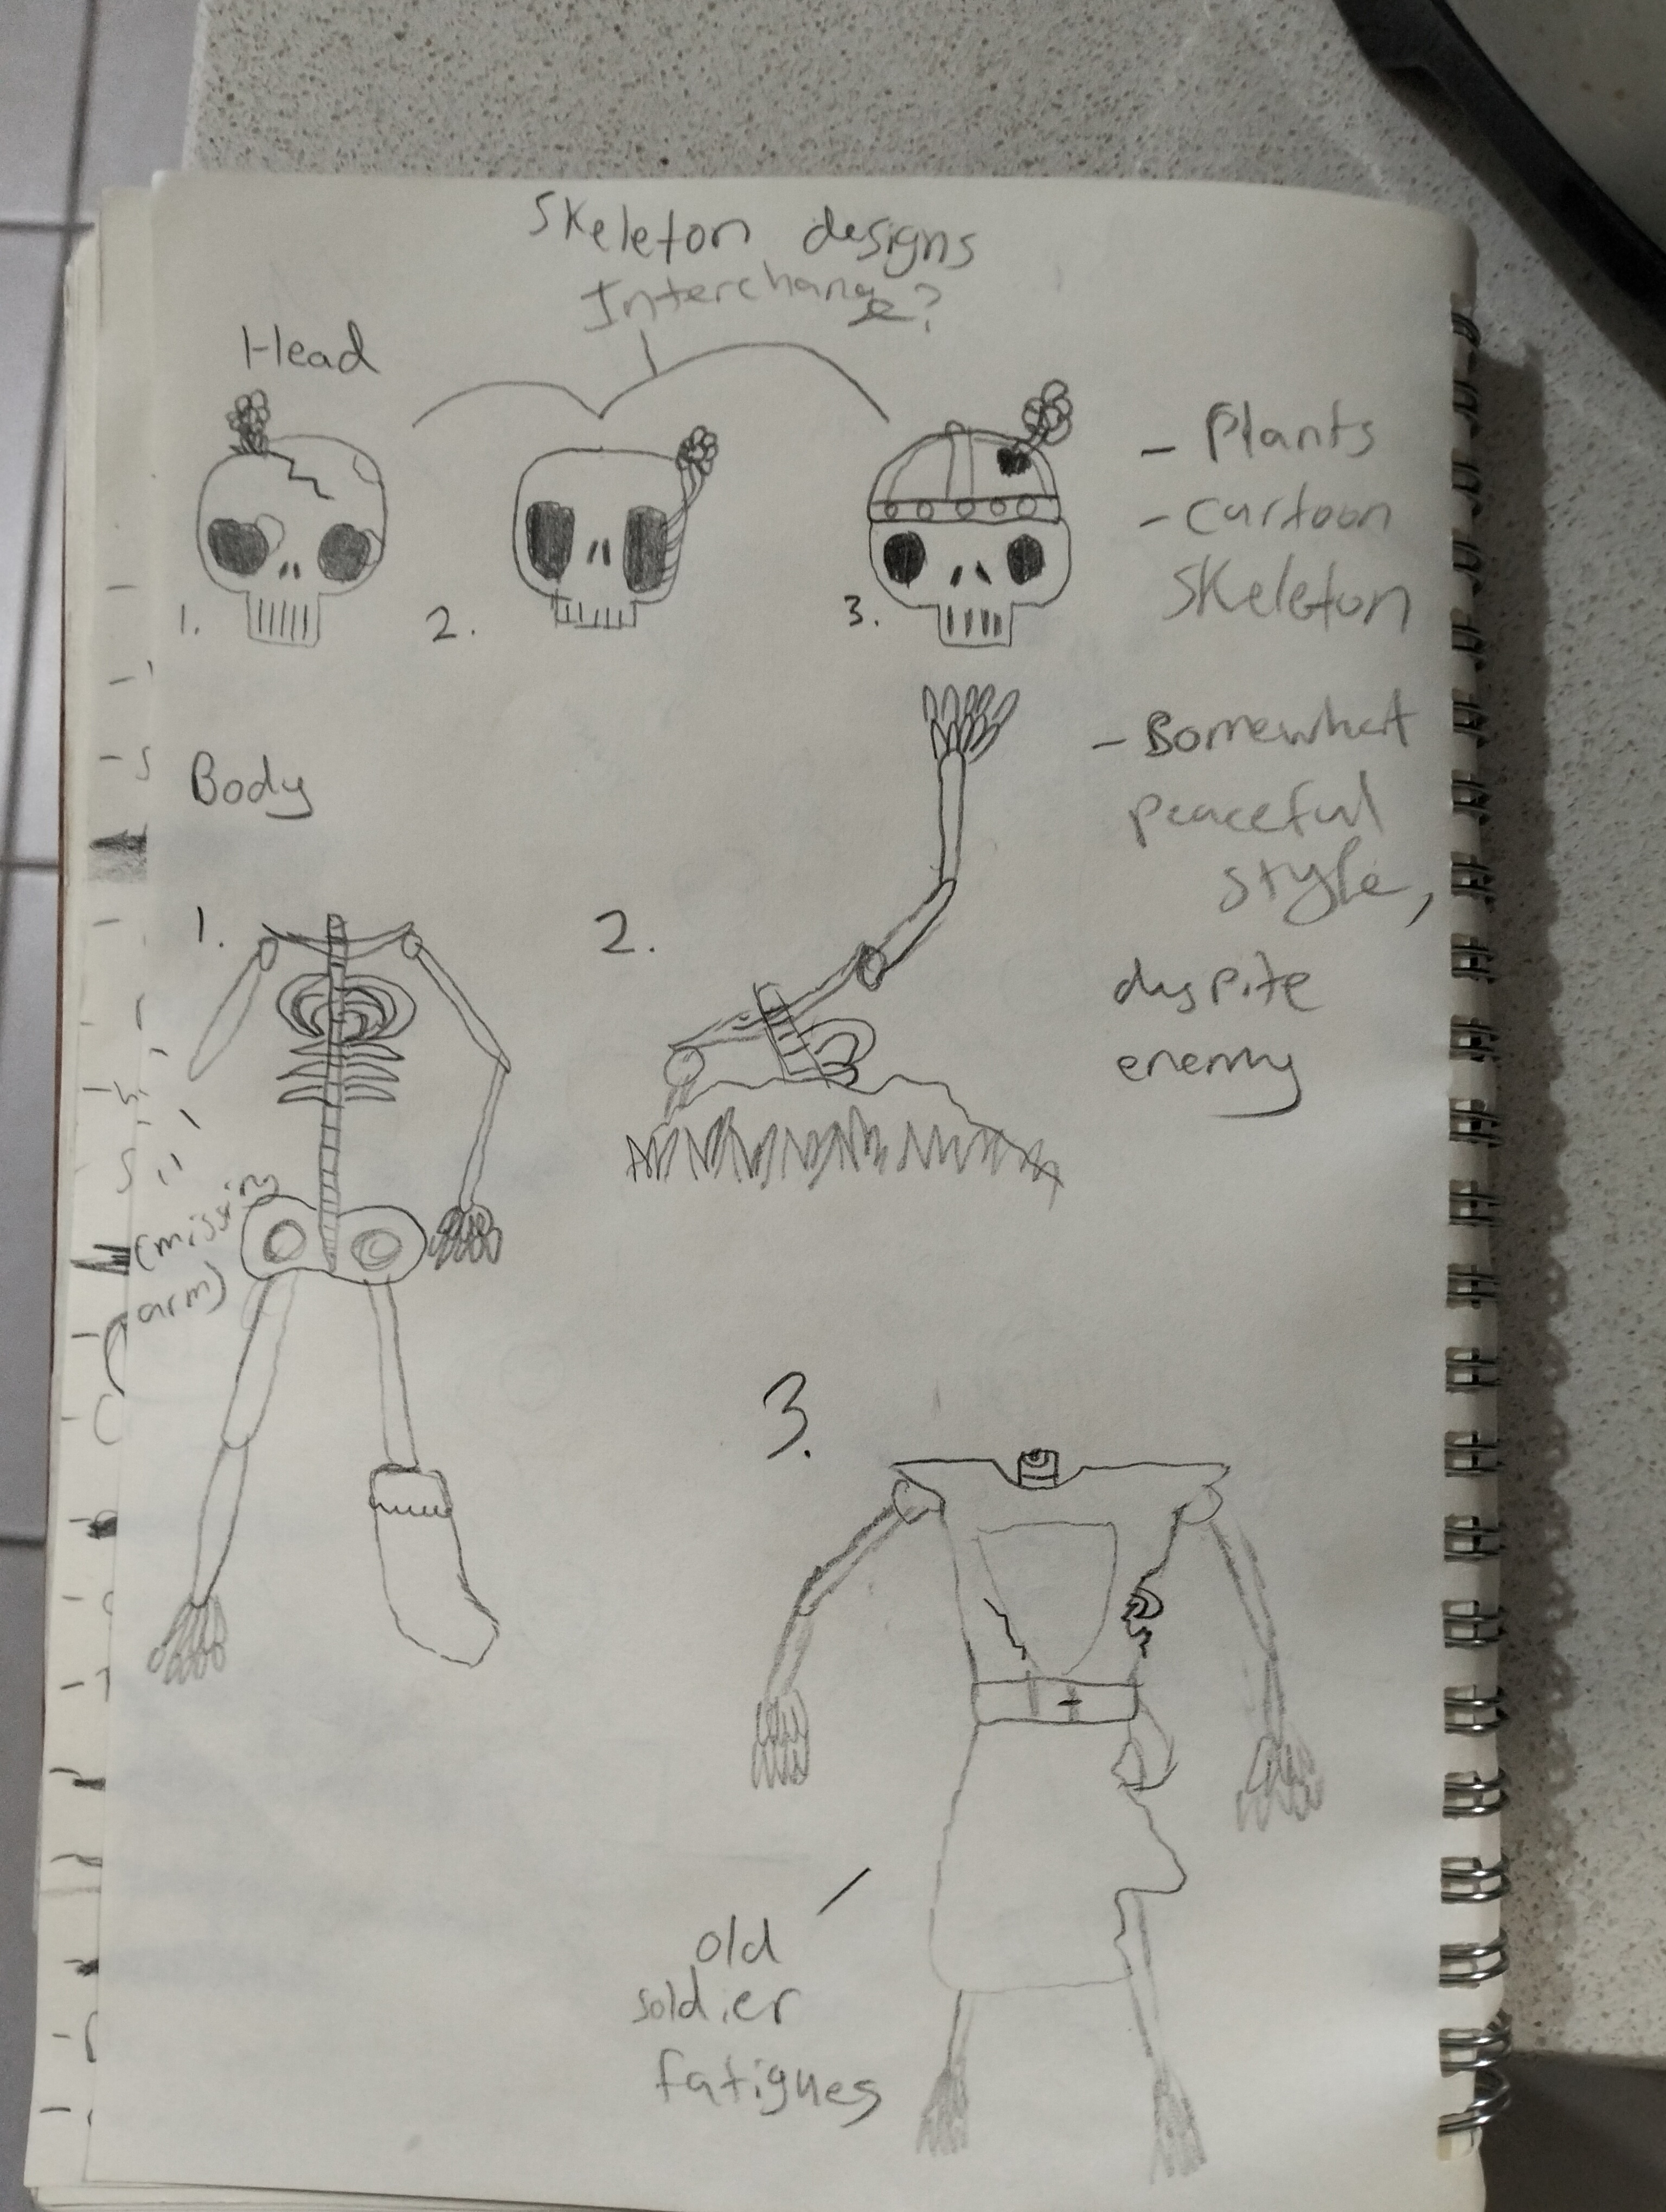 Skeleton designs
Interchange?
Head
1.
2.
3.
- Plants
- cartoon
Skeleton
- Somewhat
peaceful
style,
dyspite
enemy
Body
1.
2.
(missing
arm)
3.
old
soldier
fatigues